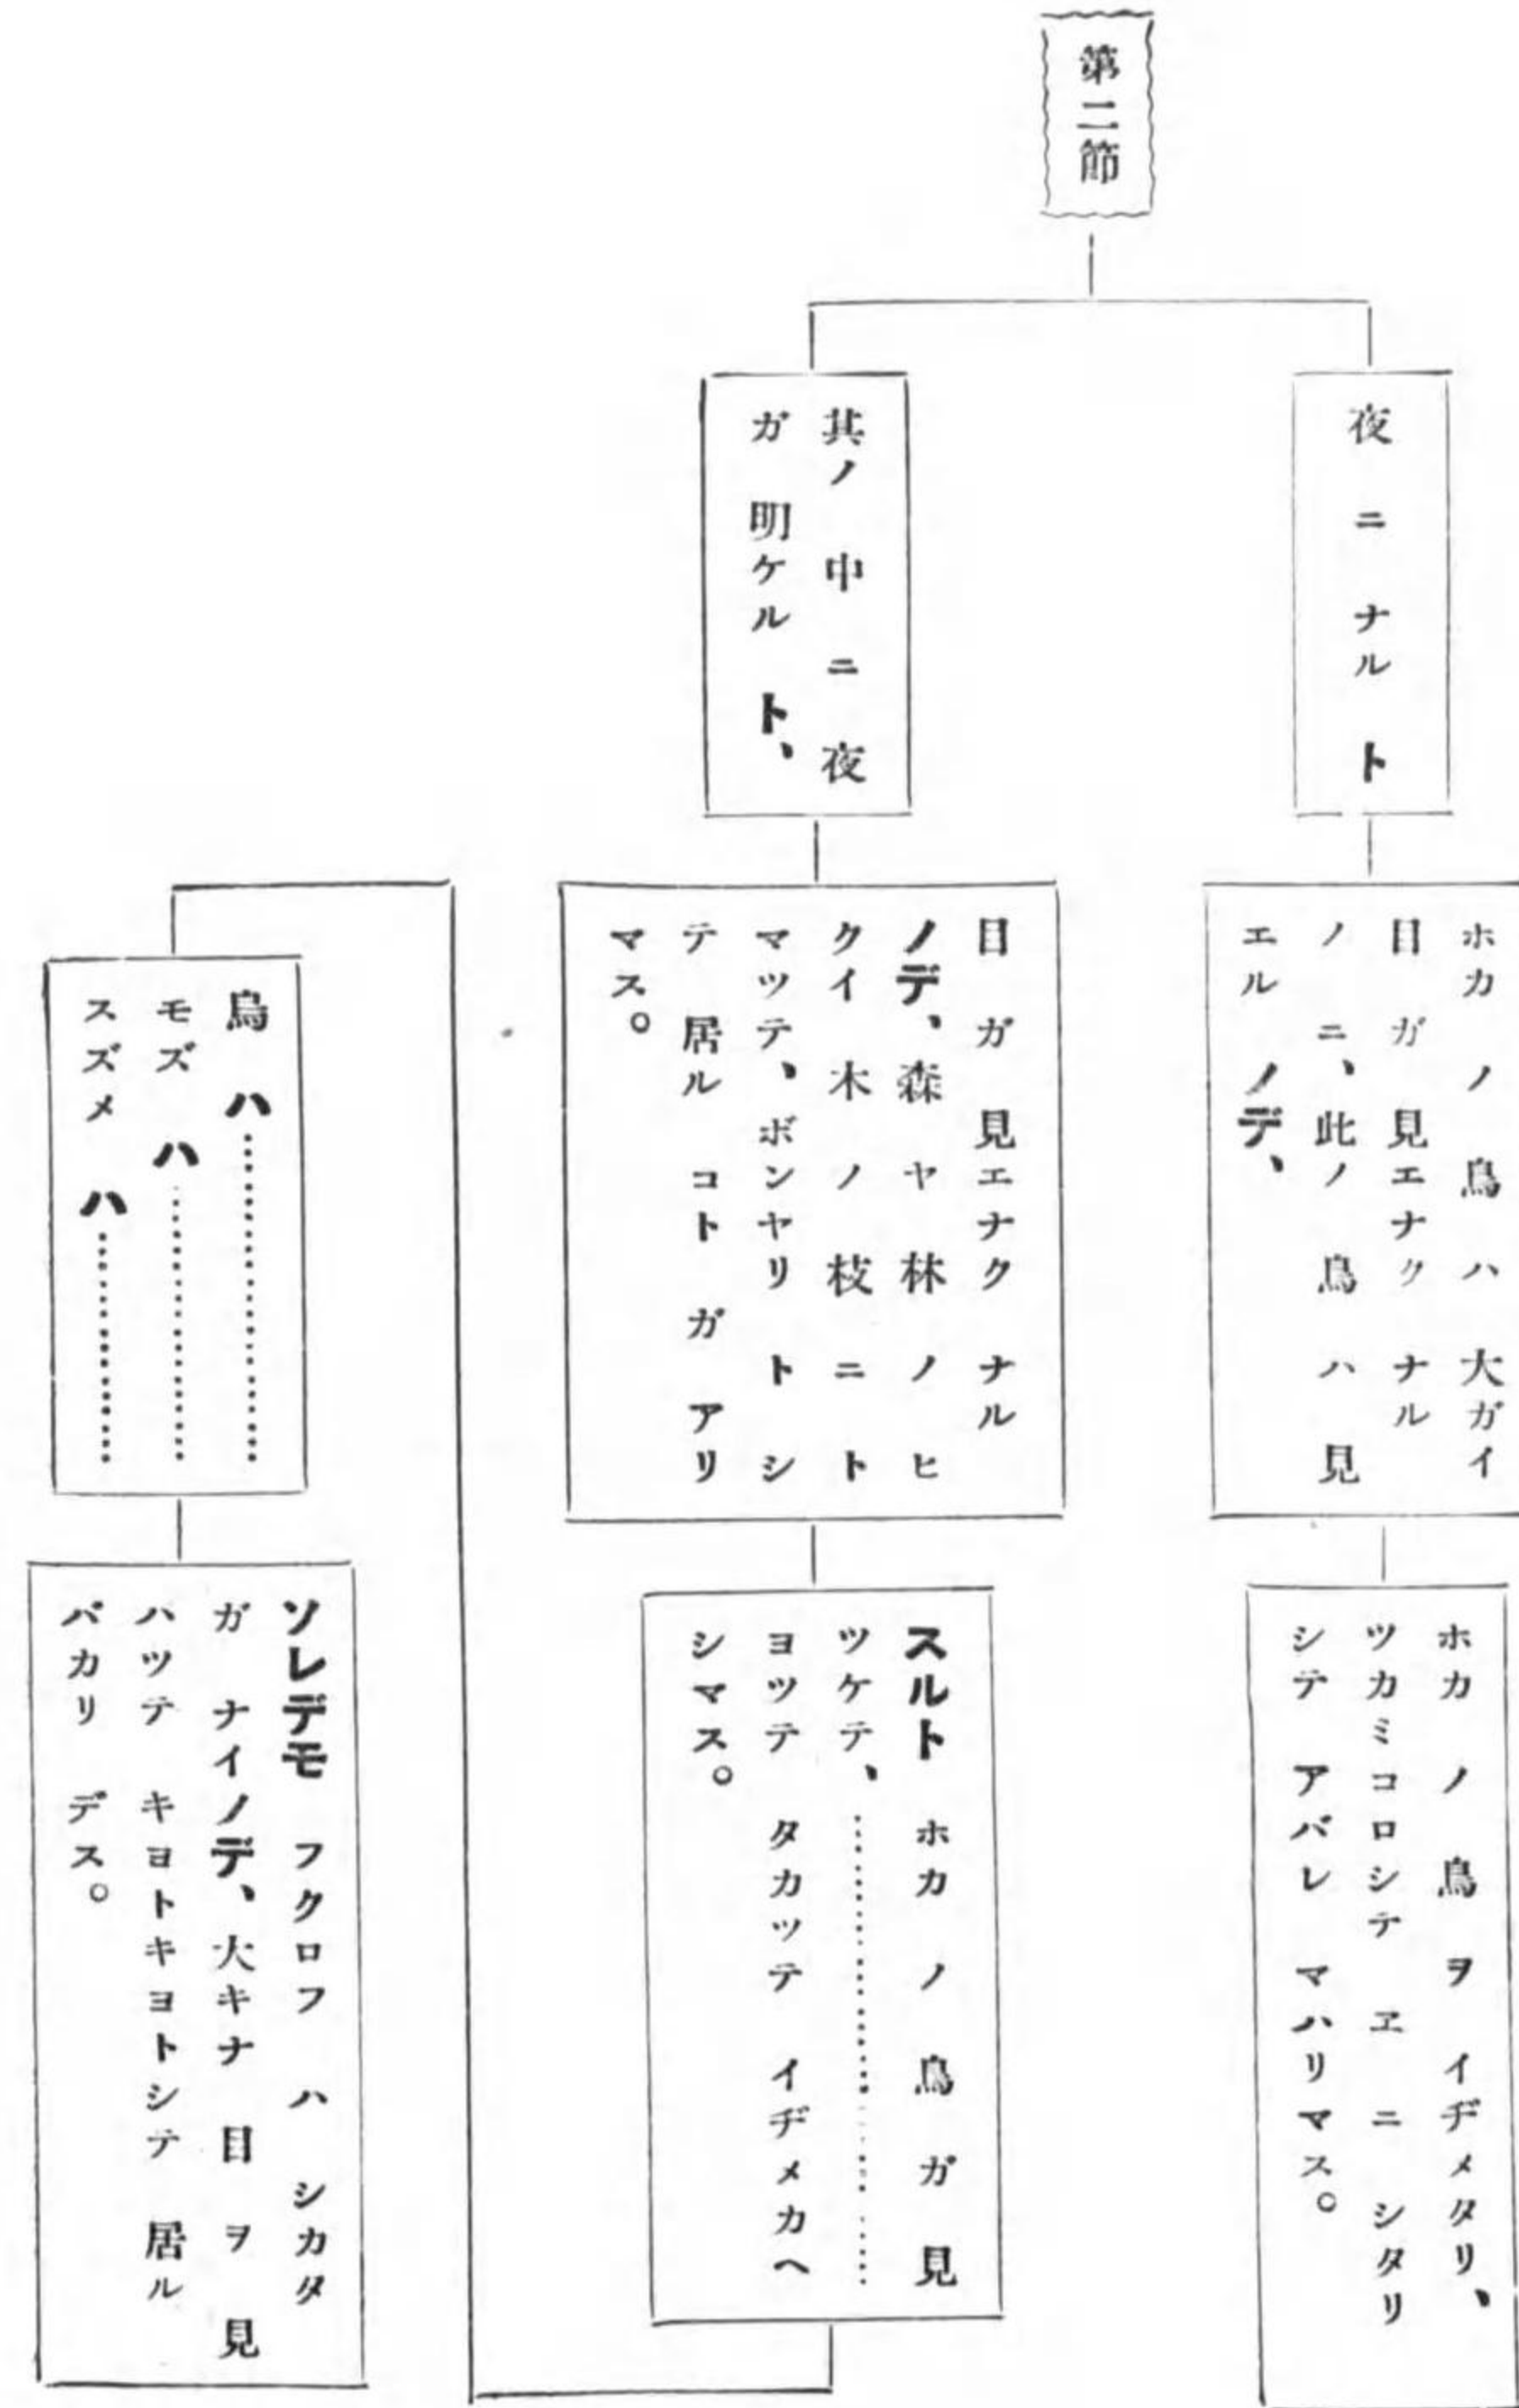 第二節
夜 ニ ナル ト
ホカ ノ 鳥 ハ 大ガイ
目 ガ 見エナク ナル
ノ ニ、此ノ 鳥 ハ 見
エル ノデ、
ホカ ノ 鳥 ヲ イヂメタリ、
ツカミコロシテ ヱ ニ シタリ
シテ アバレ マハリマス。
其ノ 中 ニ 夜
ガ 明ケル ト、
目 ガ 見エナク ナル
ノデ、森 ヤ 林 ノ ヒ
クイ 木 ノ 枝 ニ ト
マツテ、ボンヤリ ト シ
テ 居ル コト ガ アリ
マス。
スルト ホカ ノ 鳥 ガ 見
ツケテ、…………………
ヨツテ タカツテ イヂメカヘ
シマス。
烏 ハ……………
モズ ハ…………
スズメ ハ………
ソレデモ フクロフ ハ シカタ
ガ ナイノデ、大キナ 目 ヲ 見
ハツテ キヨトキヨトシテ 居ル
バカリ デス。